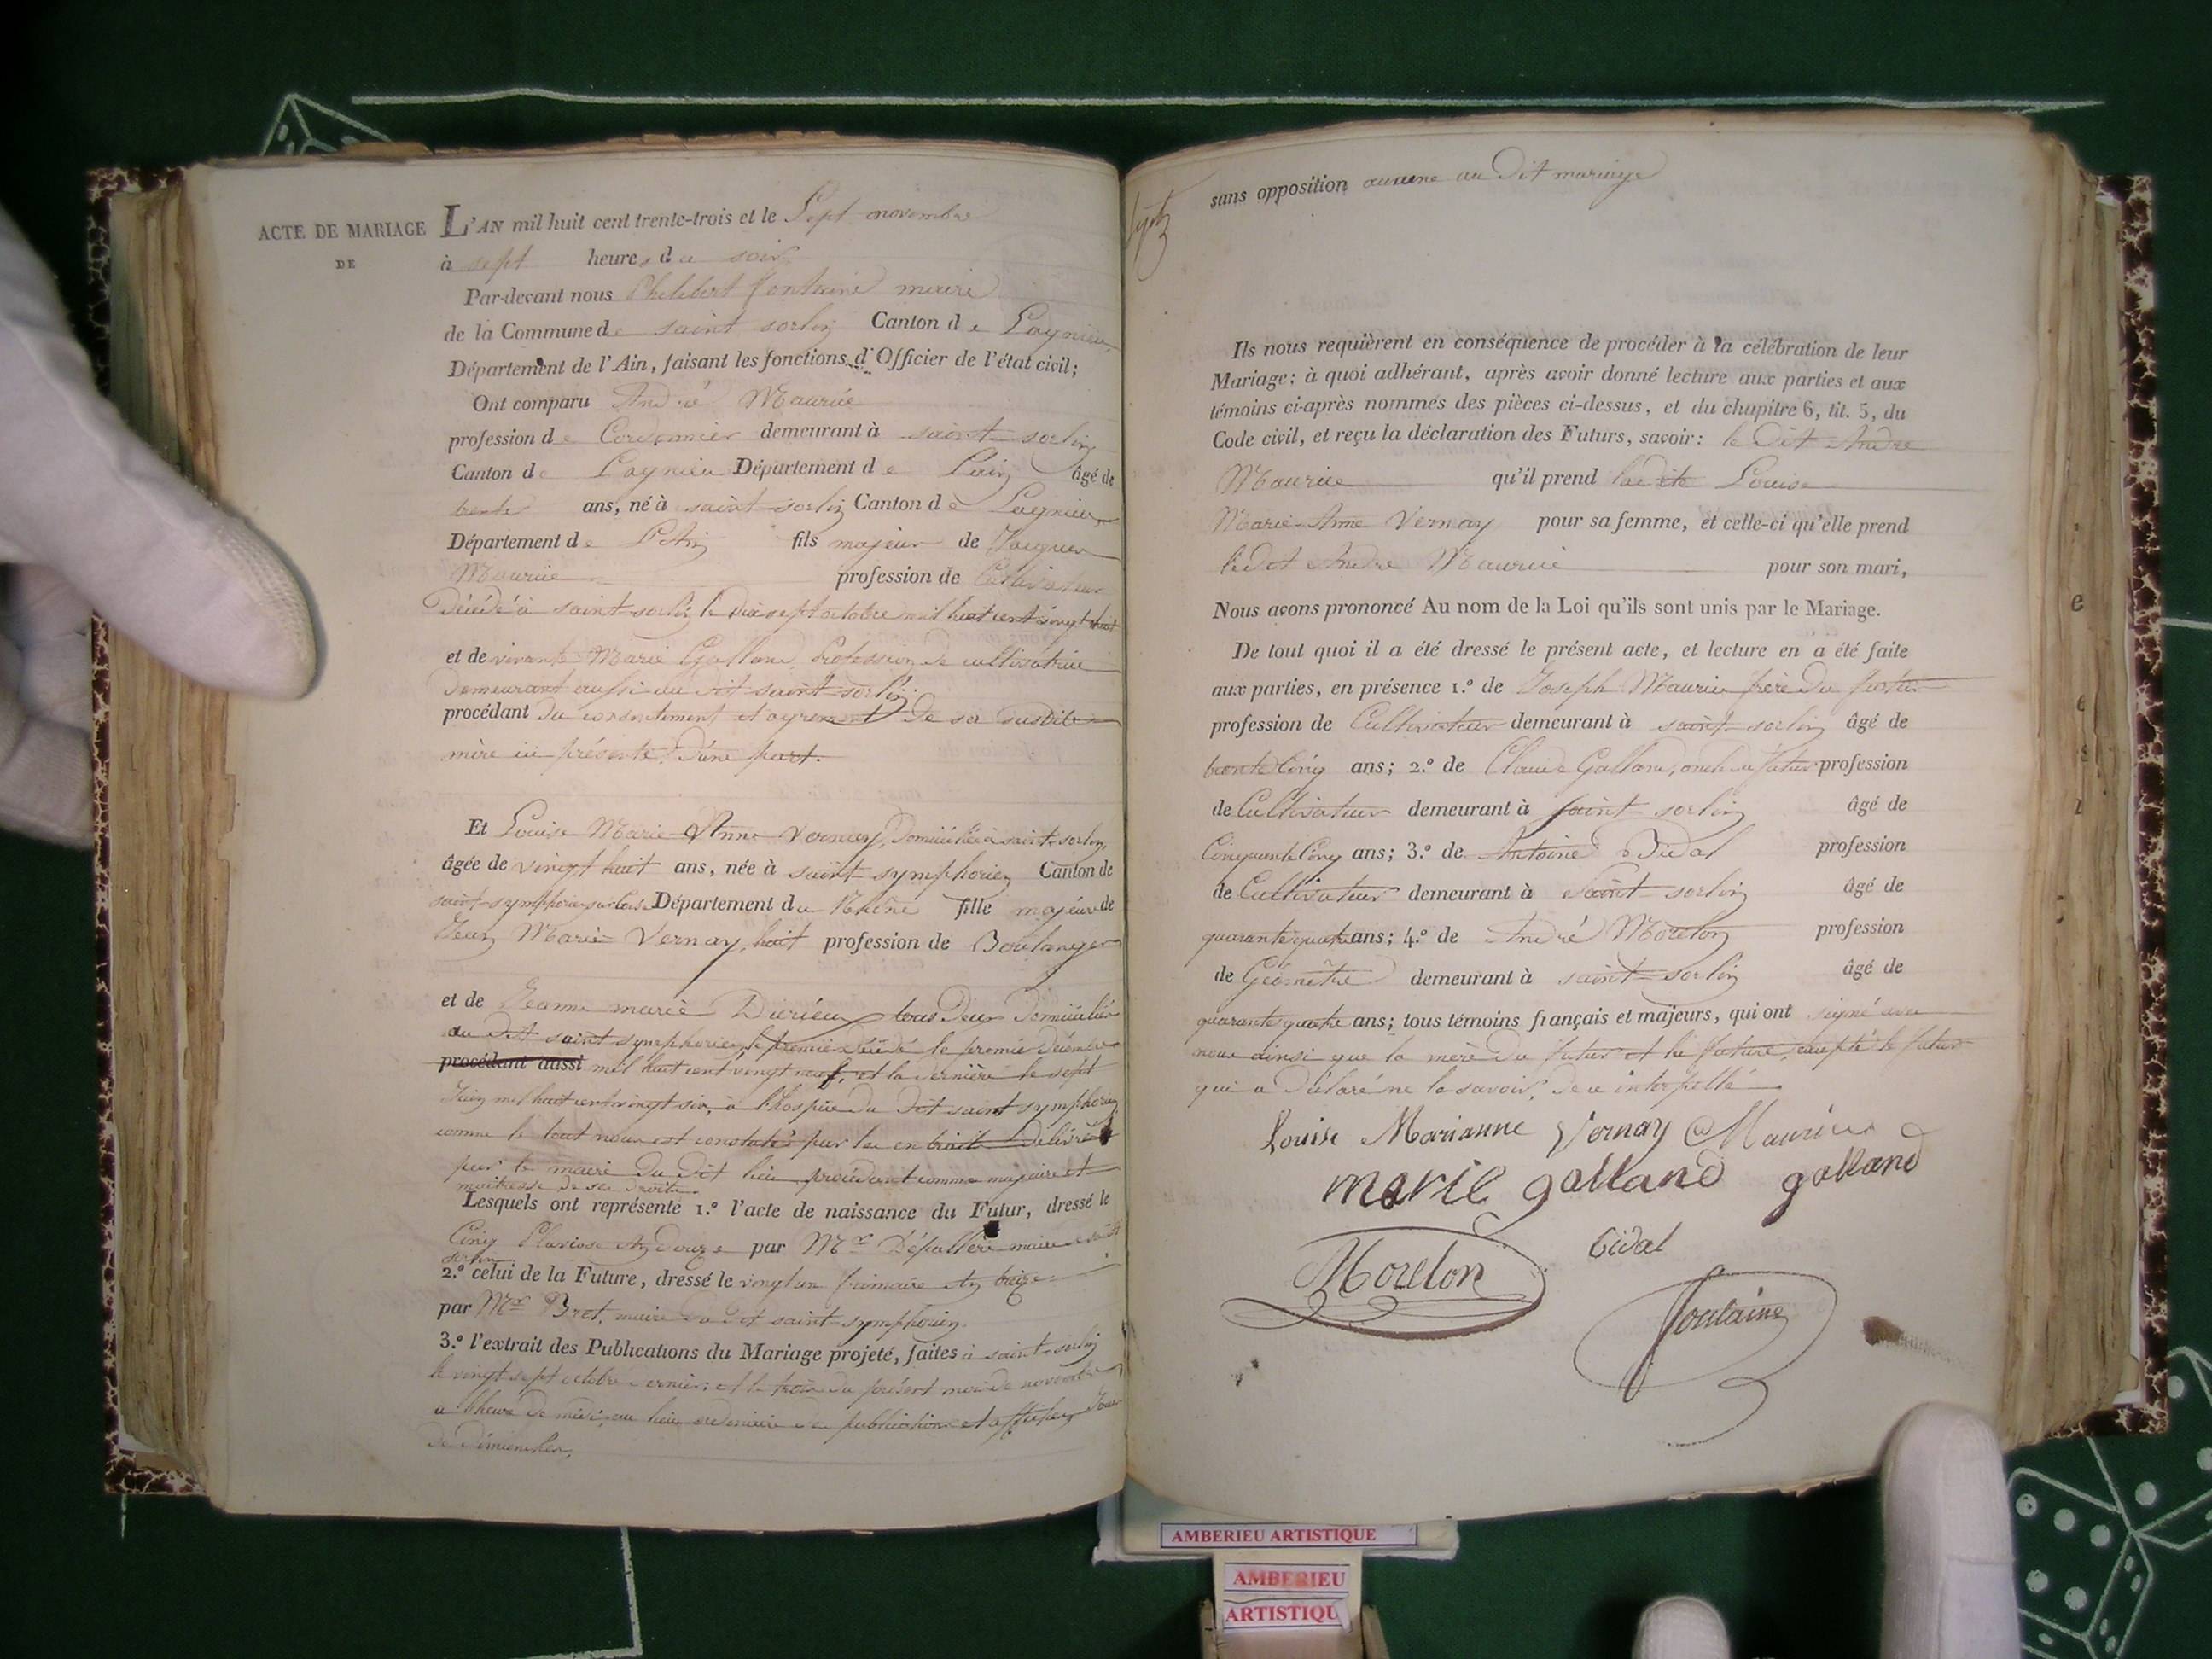 ACTE DE MARIAGE
DE
L'AN mil huit cent trente-trois et le Sept novembre
à sept heures du soir
Par-devant nous Philibert fontaine maire
de la Commune de saint sorlin Canton de Lagnieu
Département de l'Ain, faisant les fonctions d'Officier de l'état civil;
Ont comparu André Mauricé
profession de Cordonnier demeurant à saint-sorlin
Canton de Lagnieu Département de Lain âgé de
trente ans, né à saint-sorlin Canton de Lagnieu
Département de L'Ain fils majeur de Jacques
Mauricé profession de Cultivateur
décédé à saint-sorlin le dix sept octobre mil huit cent vingt huit
et de vivante Marie Galland, profession de cultivatrice
demeurant aussi au dit saint-sorlin
procédant du consentement et agrement de sa susdite
mère ici présente, d'une part.
Et Louise Marie Anne Vernay, domiciliée à saint-sorlin,
âgée de vingt huit ans, née à saint-symphorien Canton de
saint-symphorien Département du Rhône fille majeure de
Jean Marie Vernay, profession de Boulanger
et de Jeanne marie tous deux domiciliés
au dit saint symphorien, le premier décédé le premier décembre
procédant aussi mil huit cent vingt neuf, et la dernière le sept
Juin mil huit cent vingt six, à l'hospice du dit saint symphorien,
comme le tout nous est constaté par les extraits délivrés
par le maire du dit lieu procédant comme majeure et
maitresse de ses droits.
Lesquels ont représenté 1.º l'acte de naissance du Futur, dressé le
Cinq Pluviose An douze par Mr Dépallère maire de saint
sorlin
2.º celui de la Future, dressé le vingt un frimaire An treize
par Mr Bret, maire du dit saint-symphorien
3.º l'extrait des Publications du Mariage projeté, faites à saint-sorlin
le vingt sept octobre dernier, et le trois du présent mois de novembre
a l'heure de midi, au lieu ordinaire des publications et affiches, Jour
de dimanches,
sans opposition aucune au dit mariage
Ils nous requièrent en conséquence de procéder à la célébration de leur
Mariage; à quoi adhérant, après avoir donné lecture aux parties et aux
témoins ci-après nommés des pièces ci-dessus, et du chapitre 6, tit. 5, du
Code civil, et reçu la déclaration des Futurs, savoir: le dit André
Mauricé qu'il prend ladite Louise
Marie-Anne Vernay pour sa femme, et celle-ci qu'elle prend
le dit André Mauricé pour son mari,
Nous avons prononcé Au nom de la Loi qu'ils sont unis par le Mariage.
De tout quoi il a été dressé le présent acte, et lecture en a été faite
aux parties, en présence 1.º de Joseph Mauricé frère du futur
profession de Cultivateur demeurant à saint-sorlin âgé de
trente Cinq ans; 2.º de Claude Galland, oncle du futur profession
de Cultivateur demeurant à saint-sorlin âgé de
Cinquante Cinq ans; 3.º de Antoine Bidal profession
de Cultivateur demeurant à Saint-sorlin âgé de
quarante quatre ans; 4.º de André Morelon profession
de Géomètre demeurant à saint-sorlin âgé de
quarante quatre ans; tous témoins français et majeurs, qui ont signé avec
nous ainsi que la mère du futur et la future, excepté le futur
qui a déclaré ne le savoir, de ce interpellé
Louise Marianne Vernay Mauricé
marie galland galland
Morelon
bidal
fontaine
AMBERIEU ARTISTIQUE
AMBERIEU
ARTISTIQU